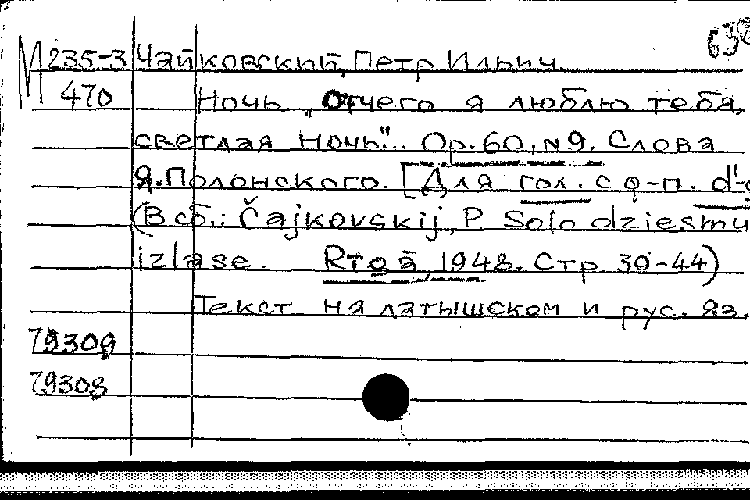 638
М 235-3 Чайковский, Петр Ильич.
470 Ночь „Отчего я люблю тебя,
светлая ночь"... Ор. 60, №9. Слова
Я. Полонского. [Для гол. с ф-п. d'-
(В сб.: Čajkovskij, P. Solo dziesmu
izlase. Rīgā, 1948. Стр. 39-44)
Текст на латышском и рус. яз.
79309
79308